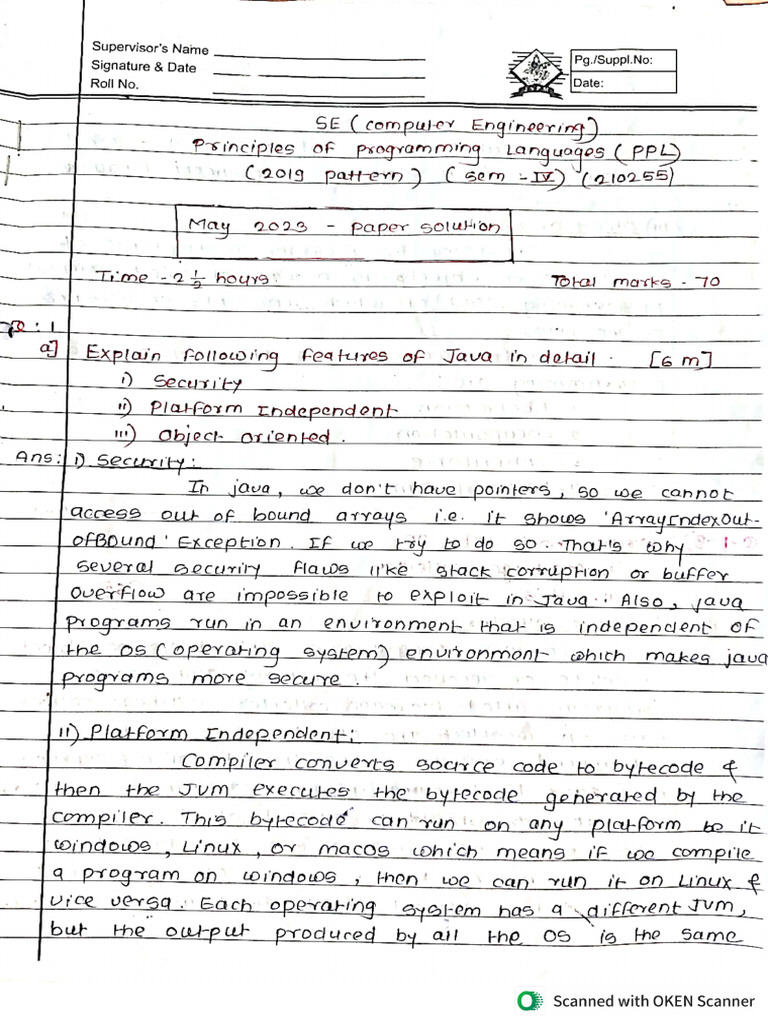 Supervisor's Name
Signature & Date
Roll No.
Pg./Suppl.No:
Date:
SE (Computer Engineering)
Principles of programming Languages (PPL)
(2019 pattern) (Sem - IV) (210255)
May 2023 - Paper solution
Time - 2 1/2 hours.
Total marks - 70
Q : 1
a] Explain following features of Java in detail. [6 m]
i) Security
ii) Platform Independent
iii) Object oriented.
Ans: i) Security:
In java, we don't have pointers, so we cannot
access out of bound arrays i.e. it shows 'ArrayIndexOut-
ofBound' Exception. If we try to do so. That's why
several security flaws like stack corruption or buffer
overflow are impossible to exploit in Java. Also, java
programs run in an environment that is independent of
the OS (operating system) environment which makes java
programs more secure.
ii) Platform Independent:
Compiler converts source code to bytecode &
then the JVM executes the bytecode generated by the
compiler. This bytecode can run on any platform be it
windows, Linux, or macos which means if we compile
a program on windows, then we can run it on Linux &
vice versa. Each operating system has a different JVM,
but the output produced by all the OS is the same
Scanned with OKEN Scanner